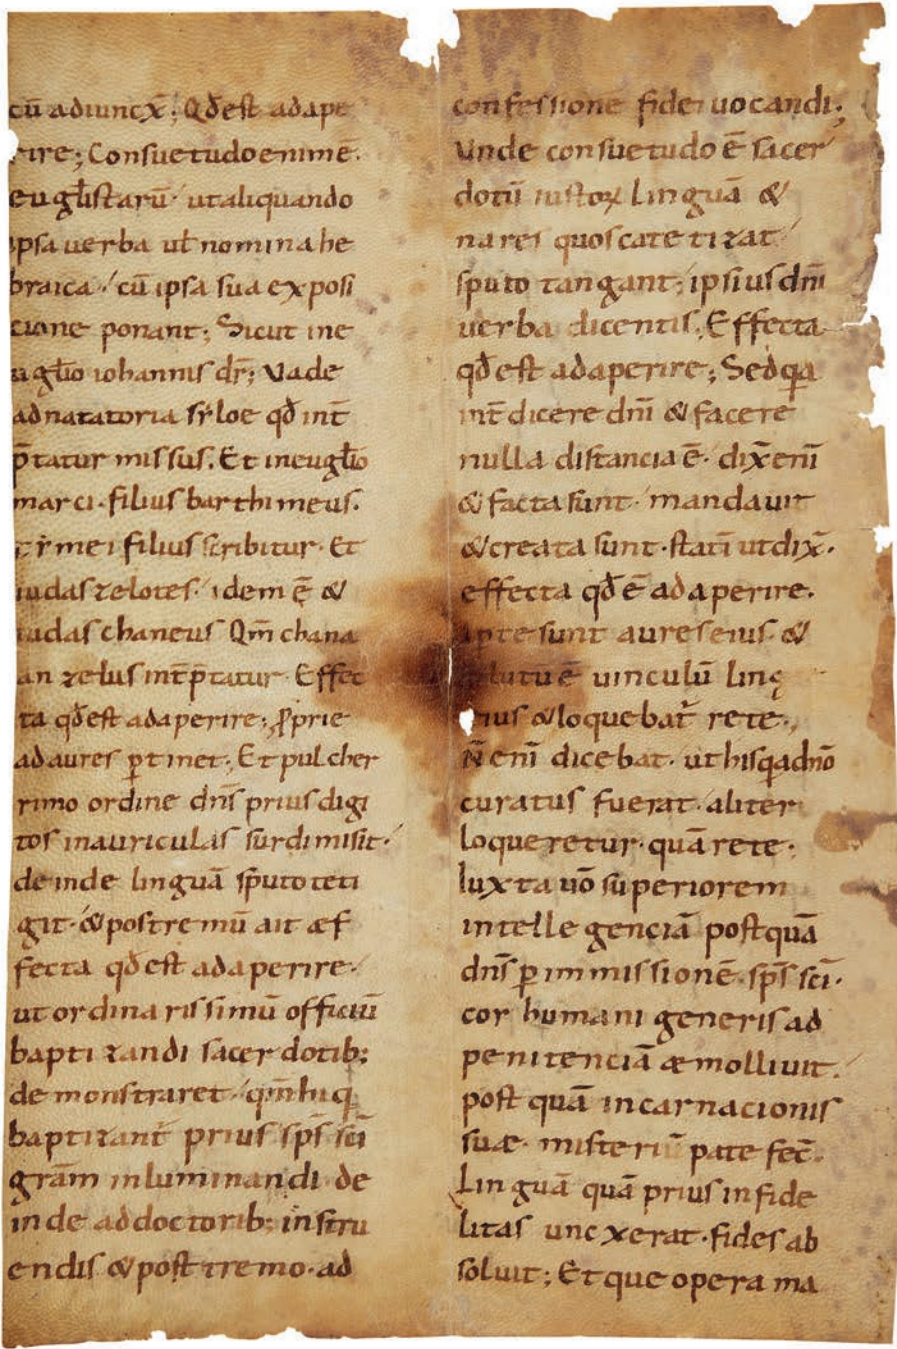 cū adiuncx̄; Qd̄ est adape
rire; Consuetudo enim ē.
euglīstarū. ut aliquando
ipsa uerba ul̄ nomina he
braica. cū ipsa sua exposi
cione ponant; Sicut in e
uaglīo iohannis dr̄; Vade
ad natatoria syloe qd̄ int̄
p̄tatur missus. Et in euglīo
marci. filius barthimeus.
tymei filius scribitur. Et
iudas zelotes. idem ē &
iudas chaneus Qm̄ chana
an zelus int̄p̄tatur. Effec
ta qd̄ est adaperire; ꝓprie
ad aures ꝑtinet; Et pulcher
rimo ordine dn̄s prius digi
tos in auriculas surdi misit.
deinde linguā sputo teti
git. & postremū ait æf
fecta qd̄ est adaperire.
ut ordinarissimū officiū
baptizandi sacerdotib;
demonstraret. qm̄ hi q
baptizant prius sp̄s sc̄i
gram̄ inluminandi de
inde ad doctorib; instru
endis & posttremo. ad
confessione fidei uocandi;
Vnde consuetudo ē sacer
dotū iustoꝝ linguā &
nares quos catetizat
sputo tangant; ipsius dn̄i
uerba dicentis. Effecta
qd̄ est adaperire; Sed qa
int̄ dicere dn̄i & facere
nulla distancia ē. dix̄ enī
& facta sunt. mandauit
& creata sunt. statī ut dix̄.
effecta qd̄ ē adaperire.
aperte sunt aures eius. &
solutū ē uinculū ling
eius & loquebat̄ rete.
N̄ enī dicebat. ut his q a dn̄o
curatus fuerat. aliter
loqueretur. quā rete.
Iuxta uō superiorem
intellegenciā postquā
dn̄s ꝑ immissionē. sp̄s sc̄i.
cor humani generis ad
penitenciā æmolliuit.
postquā incarnacionis
suæ. misteriū patefec̄.
Linguā quā prius infide
litas uncxerat. fides ab
soluit; Et que opera ma